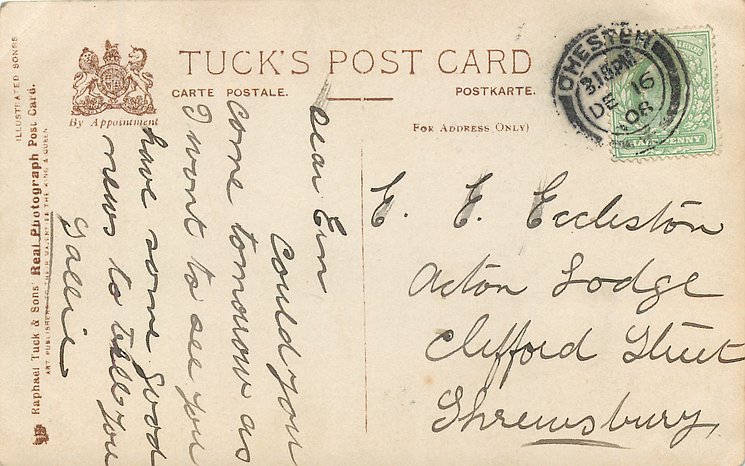 TUCK'S POST CARD
CARTE POSTALE.
POSTKARTE.
By Appointment
FOR ADDRESS ONLY)
ILLUSTRATED SONGS
Raphael Tuck & Sons' Real Photograph Post Card.
ART PUBLISHERS TO THEIR MAJESTIES THE KING & QUEEN
CHESTER
3.15PM
DE 16
08
HALFPENNY
Dear Ern
Could you
come tomorrow as
I wont to see you
have some good
news to tell you
E. E. Eccleston
Acton Lodge
Clifford Street
Shrewsbury